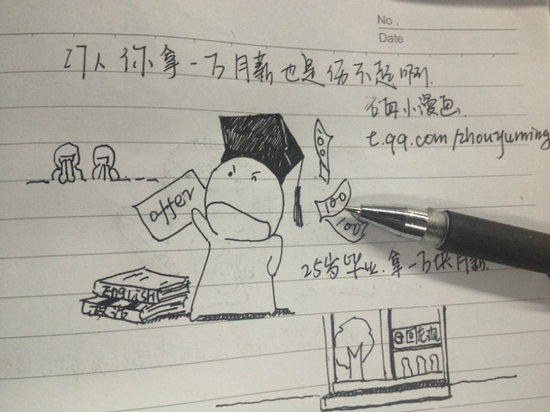 No.
Date
IT人你拿一万月薪也是伤不起啊.
小漫画
t.qq.com/zhouyuming
offer
100
100
25岁毕业.拿一万块月薪.
English
政治
回龙观